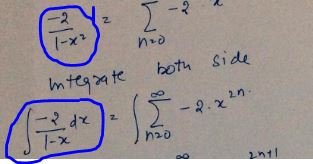 -2/(1-x²) = Σ n=0 -2 x
Integrate both side
∫ -2/(1-x) dx = ∫ Σ n=0 ∞ -2·x^2n.
∞ 2n+1